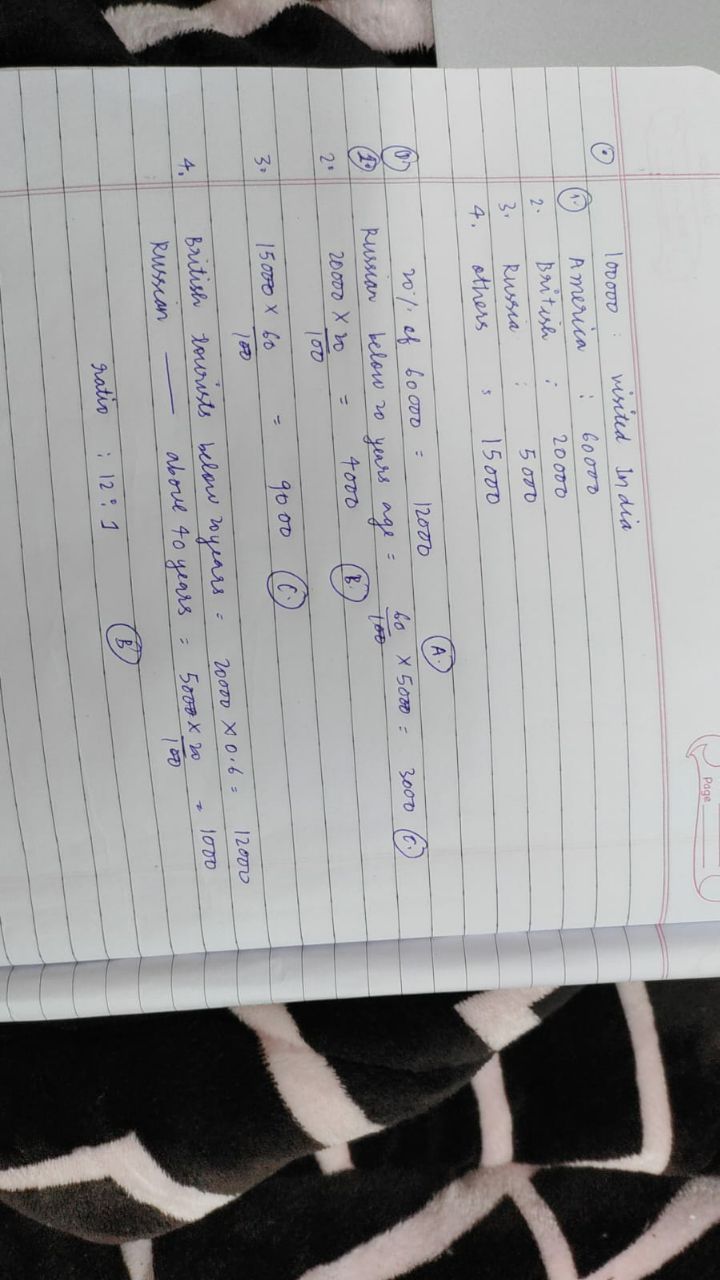 Page
100000 : visited India
1. America : 60000
2. British : 20000
3. Russia : 5000
4. others : 15000
0. 20% of 60000 = 12000 A.
1. Russian below 20 years age = 60/100 X 5000 = 3000 C.
2. 20000 X 20/100 = 4000 B.
3. 15000 X 60/100 = 9000 C.
4. British tourists below 20 years = 20000 X 0.6 = 12000
Russian —— above 40 years = 5000 X 20/100 = 1000
ratio : 12 : 1 B